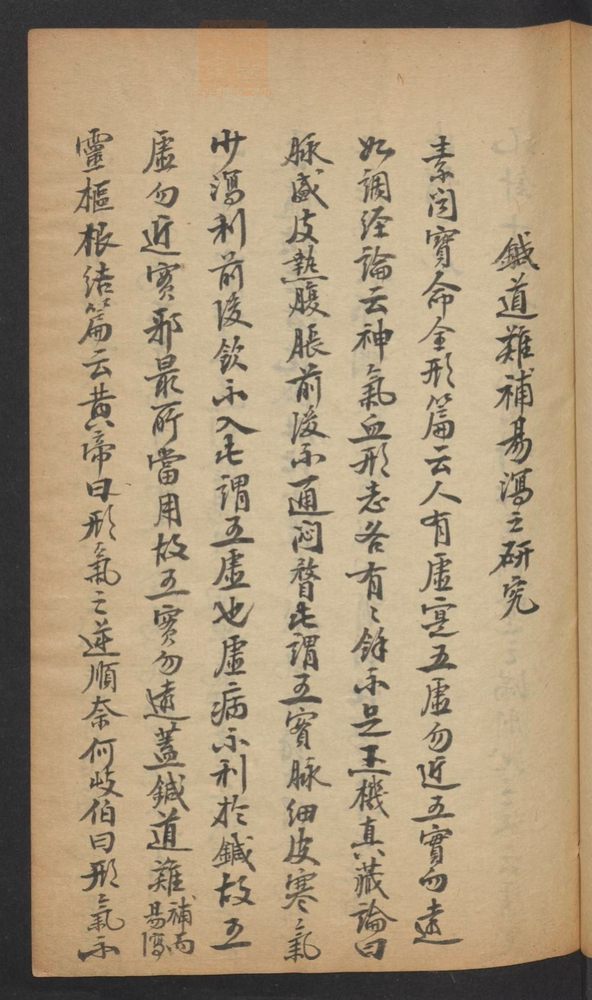 鍼道難補易瀉之研究
素問寶命全形篇云人有虛寔五虛勿近五實勿遠
如調經論云神氣血形志各有〻餘不足玉機真藏論曰
脉盛皮熱腹脹前後不通悶瞀此謂五實脉細皮寒氣
少瀉利前後飲不入此謂五虛也虛病不利於鍼故五
虛勿近實邪最所當用故五實勿遠蓋鍼道難補而易瀉
靈樞根結篇云黃帝曰形氣之逆順奈何岐伯曰形氣不